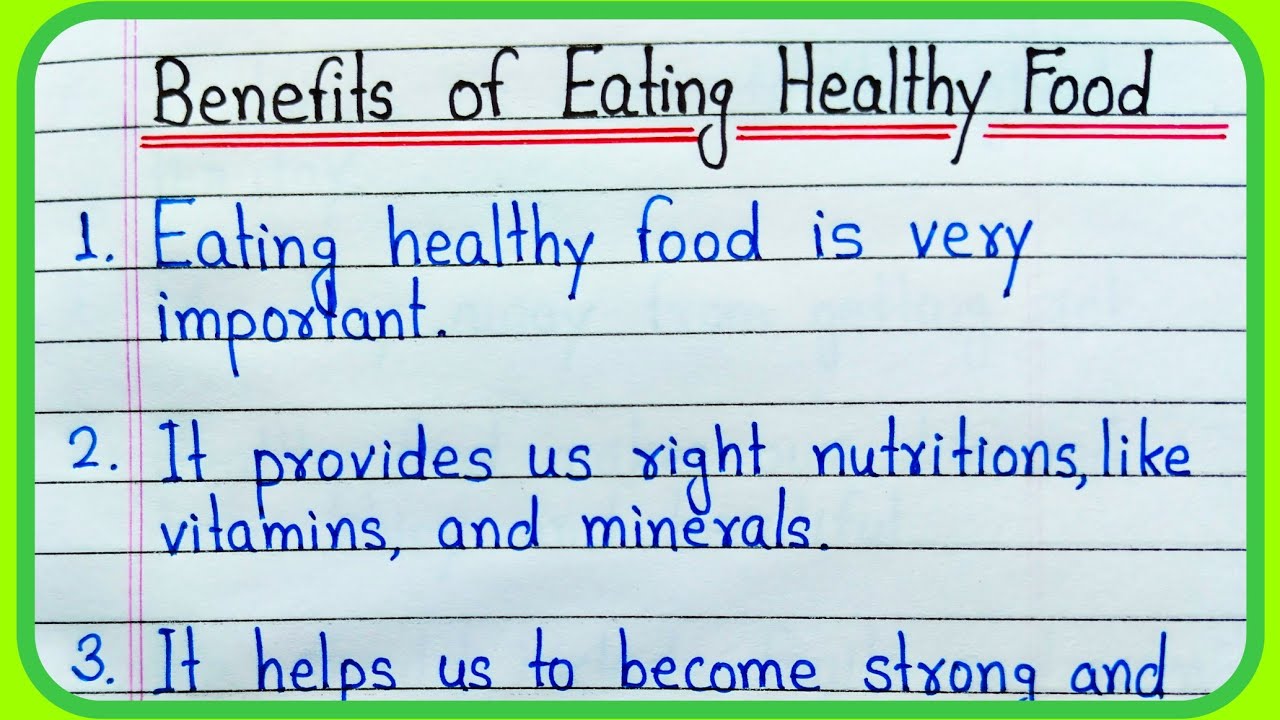 Benefits of Eating Healthy Food
1. Eating healthy food is very
important.
2. It provides us right nutritions, like
vitamins, and minerals.
3. It helps us to become strong and